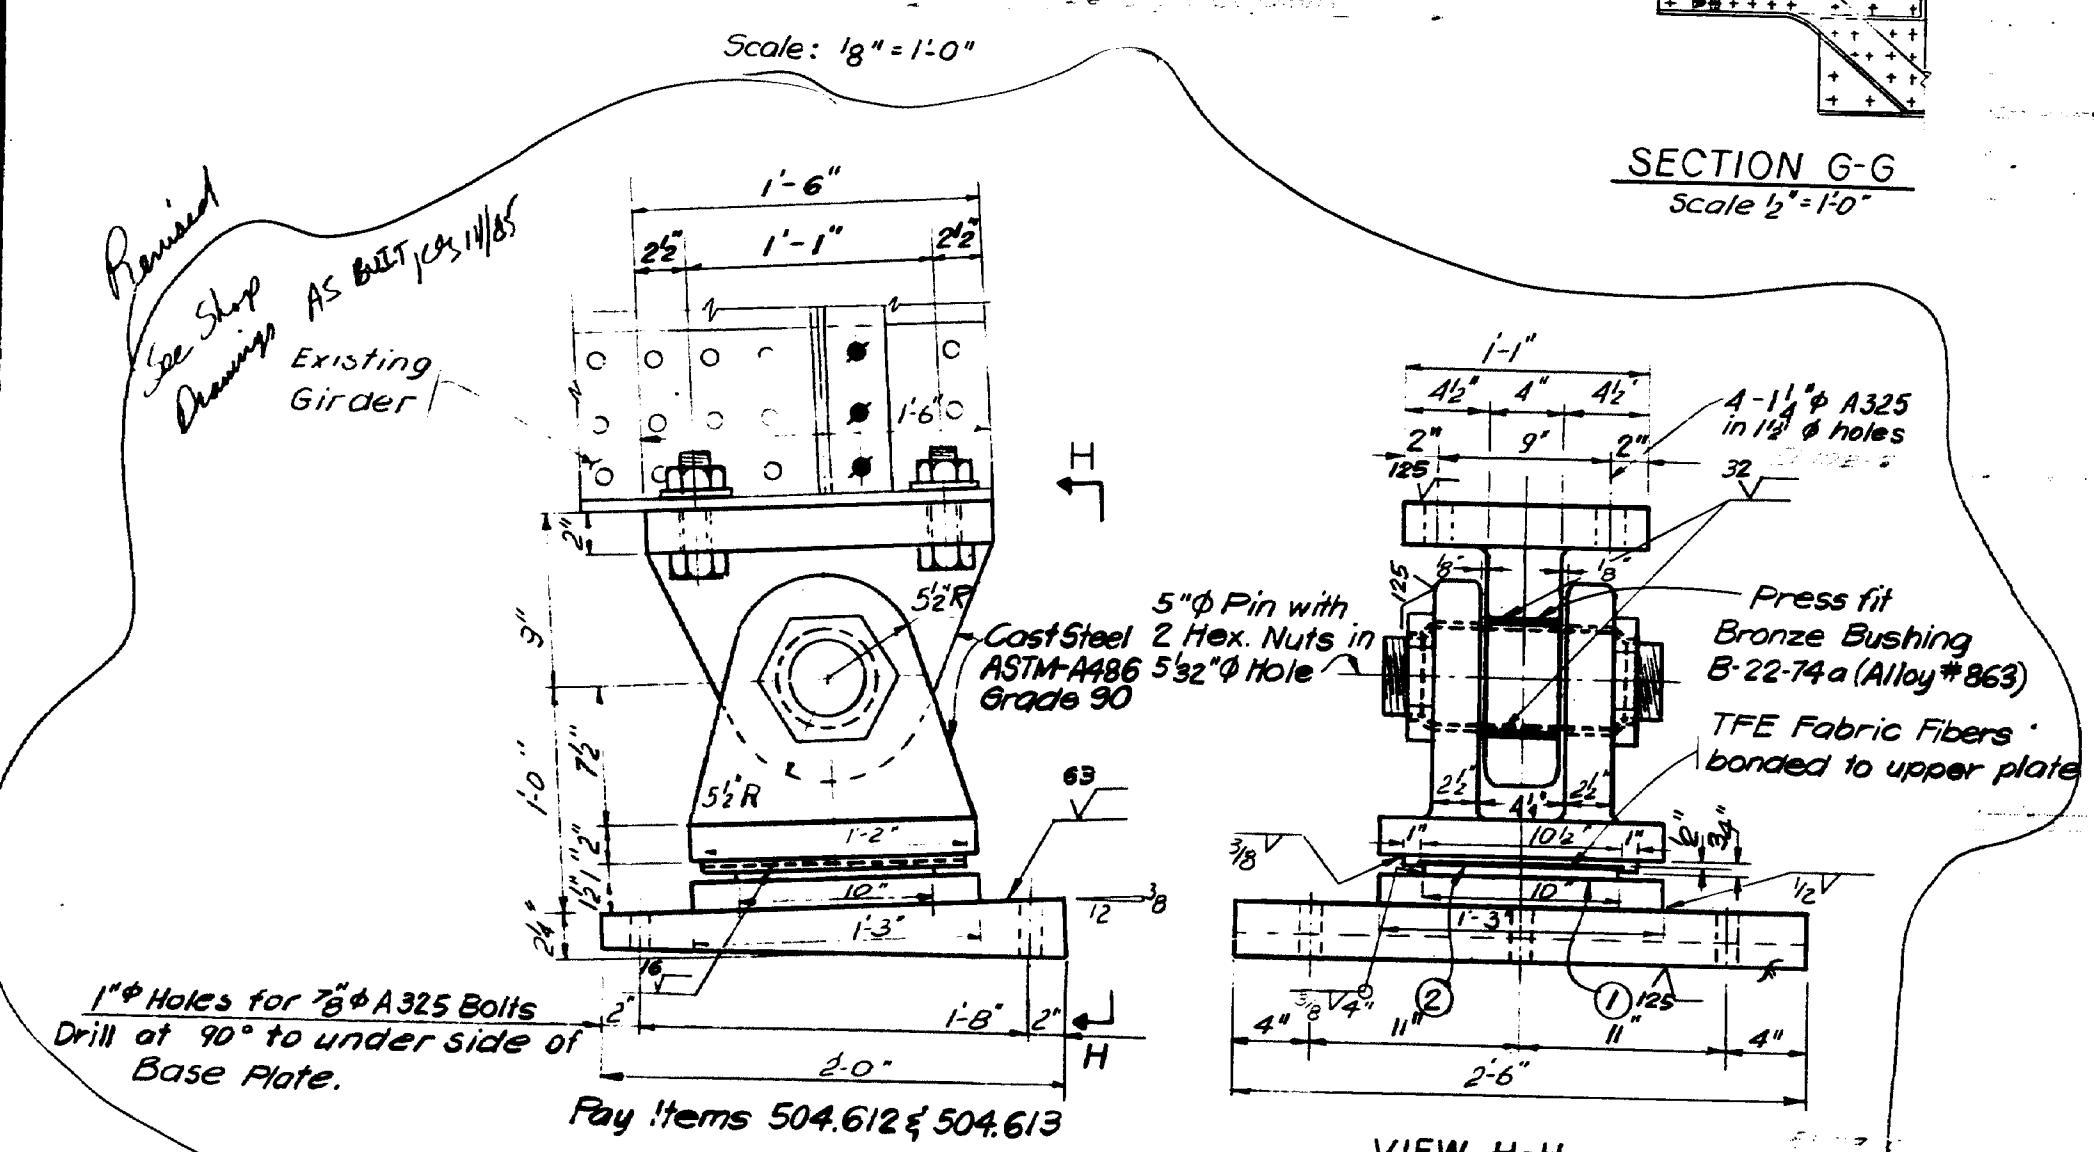 Scale: 1/8" = 1'-0"
SECTION G-G
Scale 1/2" = 1'-0"
Revised
See Shop
Drawings
AS BUILT,
Existing
Girder
1'-6"
2 1/2"
1'-1"
2 1/2"
1'-6"
H
2"
9"
5 1/2" R
Cast Steel
ASTM-A486
Grade 90
1'-0"
7 1/2"
2"
1"
1 1/2"
2 1/4"
5 1/2" R
1'-2"
63
10"
1'-3"
12
3/8
16
1"φ Holes for 7/8"φ A325 Bolts
Drill at 90° to under side of
Base Plate.
2"
1'-8"
2"
H
2'-0"
Pay Items 504.612 & 504.613
1'-1"
4 1/2"
4"
4 1/2"
2"
9"
2"
4-1 1/4"φ A325
in 1 1/2"φ holes
125
32
125
1/8"
1/8"
5"φ Pin with
2 Hex. Nuts in
5 1/32"φ Hole
Press fit
Bronze Bushing
B-22-74a (Alloy #863)
TFE Fabric Fibers
bonded to upper plate
2 1/2"
4 1/4"
2 1/2"
1"
10 1/2"
1"
3/4"
3/8
10"
1/2
1'-3"
3/8
4"
2
1
125
4"
11"
11"
4"
2'-6"
VIEW H-H